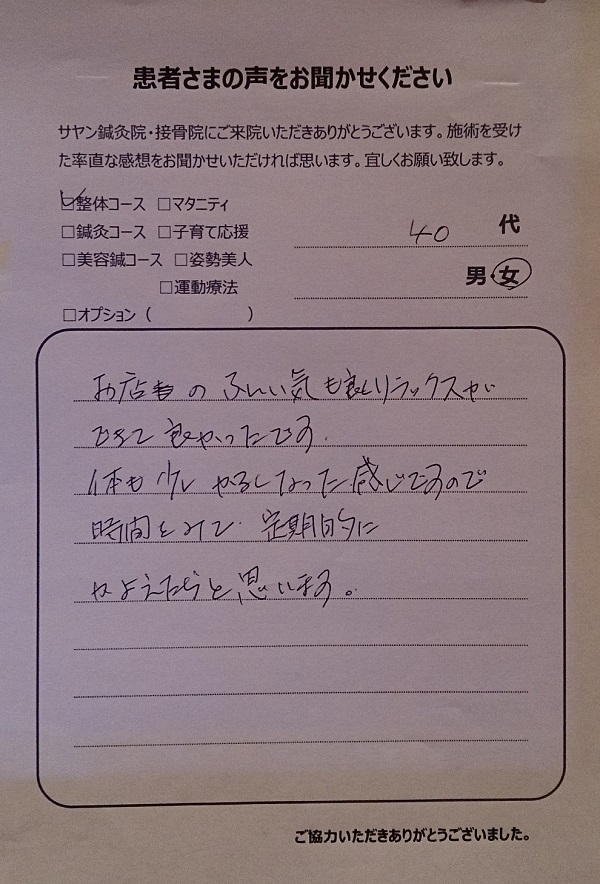 患者さまの声をお聞かせください
サヤン鍼灸院・接骨院にご来院いただきありがとうございます。施術を受け
た率直な感想をお聞かせいただければ思います。宜しくお願い致します。
☑整体コース □マタニティ
□鍼灸コース □子育て応援
40 代
□美容鍼コース □姿勢美人
男・女
□運動療法
□オプション（ ）
お店の ふんい気も良くリラックスが
できて良かったです。
体も少し かるくなった感じですので
時間をみて 定期的に
かよえたらと思います。
ご協力いただきありがとうございました。